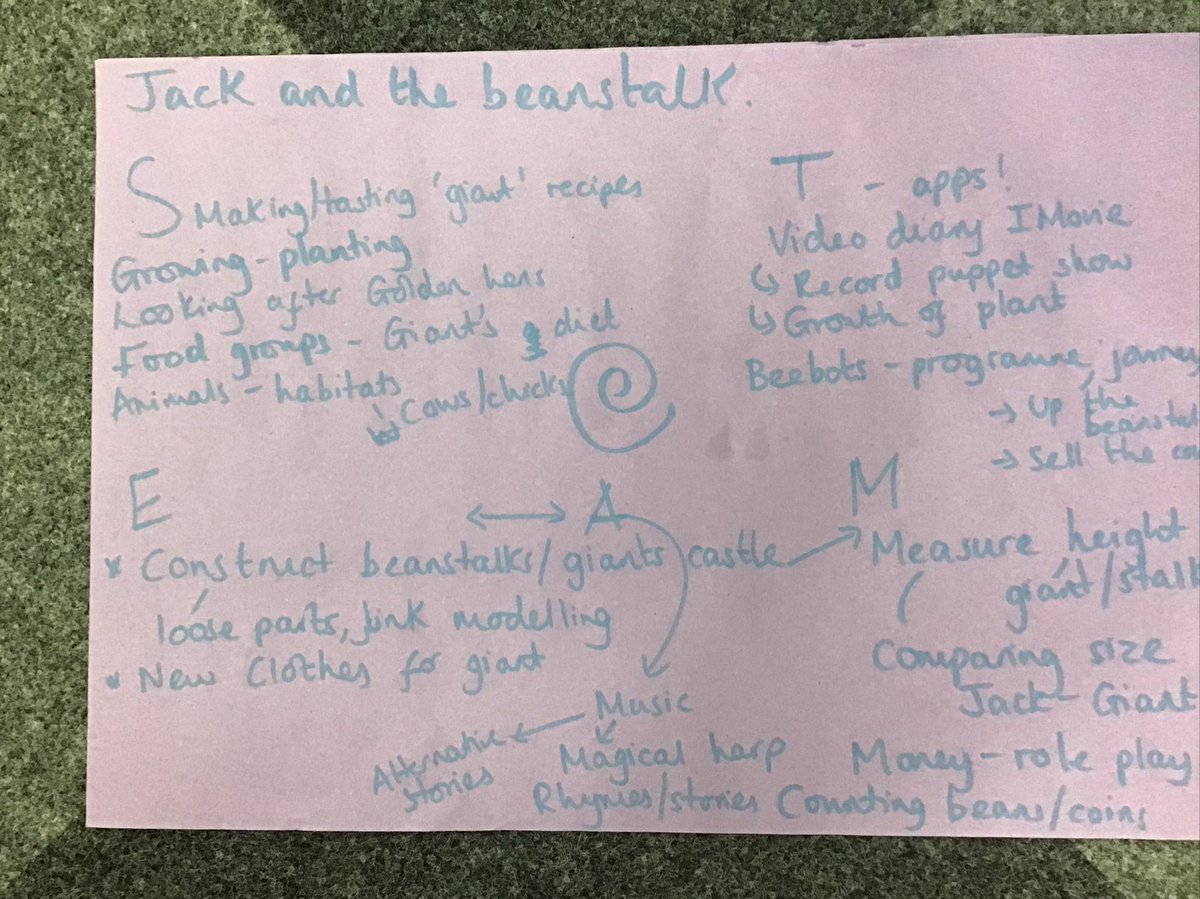 Jack and the beanstalk.
S
Making/tasting 'giant' recipes
Growing - planting
Looking after Golden hens
Food groups - Giant's diet
Animals - habitats
Cows/chicks
T - apps!
Video diary IMovie
↳ Record puppet show
↳ Growth of plant
Beebots - programme
→ Up the
→ Sell the
E ↔ A
* Construct beanstalks/giants castle →
loose parts, junk modelling
* New Clothes for giant
Music
Alternative
stories
Magical harp
Rhymes/stories
M
Measure height
giant/
Comparing size
Jack - Giant
Money - role play
Counting beans/coins